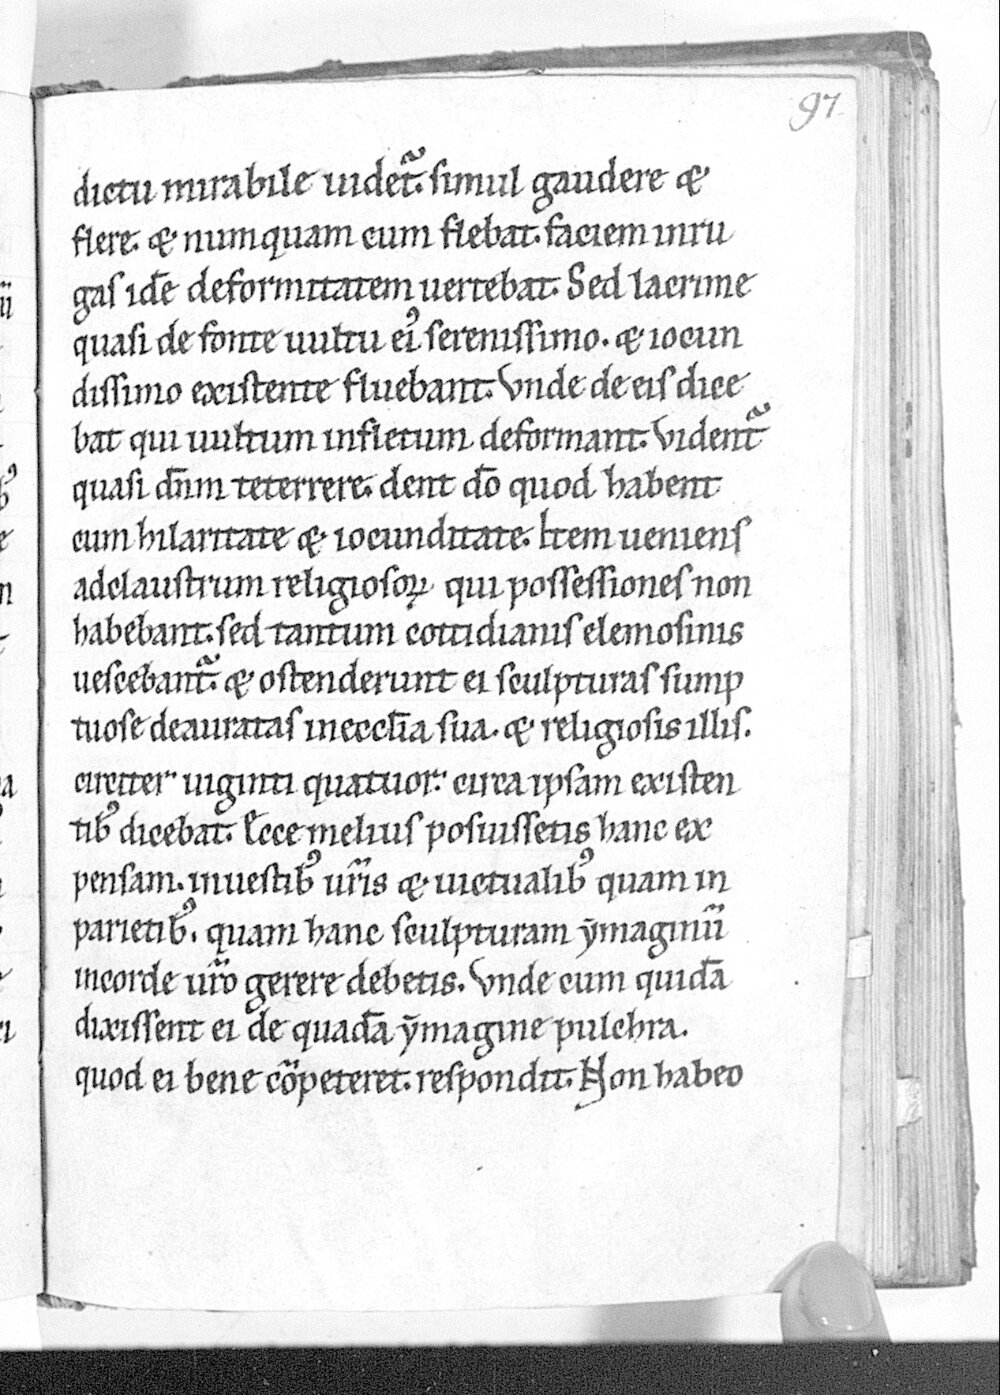 97.
dictu mirabile uidet᷑. simul gaudere &
flere. & numquam cum flebat. faciem in ru
gas id̄e deformitatem uertebat. Sed lacrime
quasi de fonte uultu ei᾿ serenissimo. & iocun
dissimo existente fluebant. Vnde de eis dice
bat qui uultum in fletum deformant. Vident᷑
quasi dn̄m teterrere. dent dō quod habent
cum hilaritate & iocunditate. Item ueniens
ad claustrum religiosoꝝ qui possessiones non
habebant. sed tantum cottidianis elemosinis
uescebant᷑. & ostenderunt ei sculpturas sump
tuose deauratas in eccl̄ia sua. & religiosis illis.
circiter uiginti quatuor. circa ipsam existen
tib᾿ dicebat. Ecce melius posuissetis hanc ex
pensam. in uestib᾿ ur̄is & uictualib᾿ quam in
parietib᾿. quam hanc sculpturam ẏmaginū
in corde ur̄o gerere debetis. Vnde cum quidā
dixissent ei de quadā ẏmagine pulchra.
quod ei bene cōpeteret. respondit. Non habeo